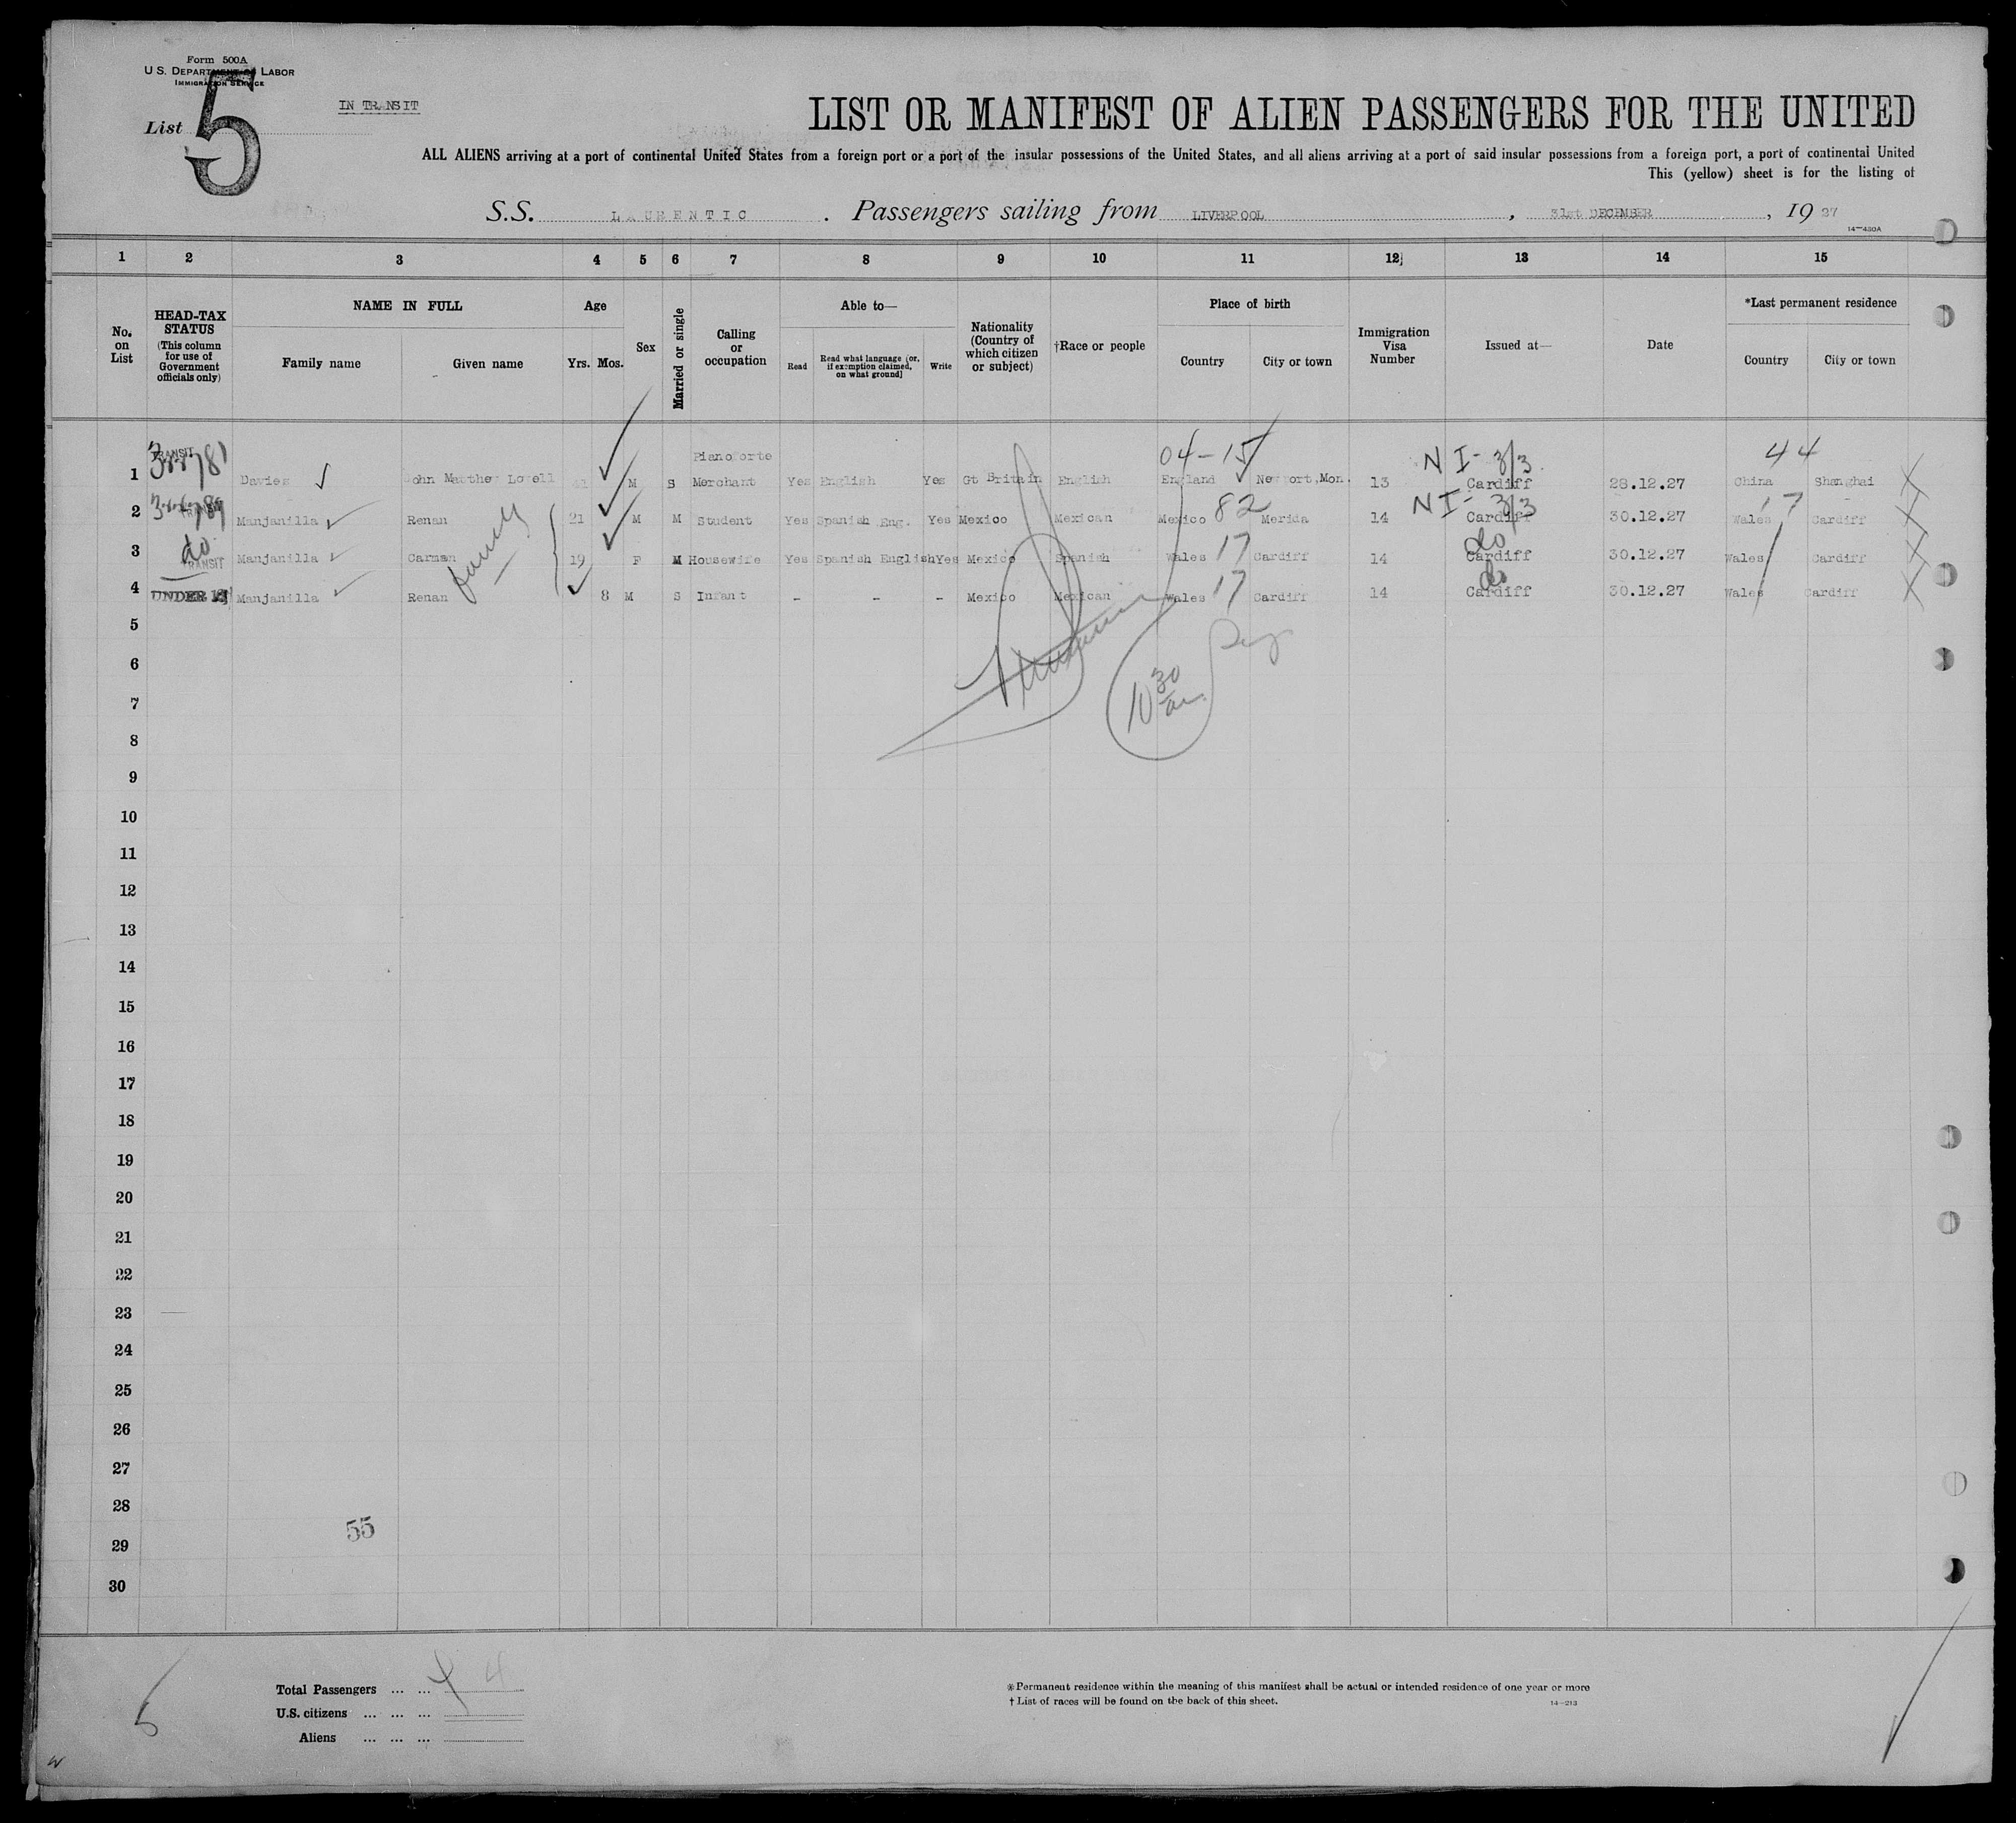 Form 500A
U S. DEPARTMENT OF LABOR
IMMIGRATION SERVICE
List 5
IN TRANSIT
LIST OR MANIFEST OF ALIEN PASSENGERS FOR THE UNITED
ALL ALIENS arriving at a port of continental United States from a foreign port or a port of the insular possessions of the United States, and all aliens arriving at a port of said insular possessions from a foreign port, a port of continental United
This (yellow) sheet is for the listing of
S.S. LAURENTIC . Passengers sailing from LIVERPOOL , 31st DECEMBER , 19 27
14—430A
1 2 3 4 5 6 7 8 9 10 11 12 13 14 15
No. on List
HEAD-TAX STATUS (This column for use of Government officials only)
NAME IN FULL
Family name Given name
Age
Yrs. Mos.
Sex
Married or single
Calling or occupation
Able to—
Read Read what language [or, if exemption claimed, on what ground] Write
Nationality (Country of which citizen or subject)
†Race or people
Place of birth
Country City or town
Immigration Visa Number
Issued at—
Date
*Last permanent residence
Country City or town
TRANSIT Pianoforte 04-15 NI- 3/3 44
1 Davies John Matthew Lovell M S Merchant Yes English Yes Gt Britain English England Newport,Mon. 13 Cardiff 28.12.27 China Shanghai
NI- 3/3
2 Manjanilla Renan 21 M M Student Yes Spanish Eng. Yes Mexico Mexican Mexico 82 Merida 14 Cardiff 30.12.27 Wales 17 Cardiff
family
3 do TRANSIT Manjanilla Carman 19 F M Housewife Yes Spanish English Yes Mexico Spanish Wales 17 Cardiff 14 do Cardiff 30.12.27 Wales Cardiff
4 UNDER Manjanilla Renan 8 M S Infant - - - Mexico Mexican Wales 17 Cardiff 14 do Cardiff 30.12.27 Wales Cardiff
5
6
10 30 am
7
8
9
10
11
12
13
14
15
16
17
18
19
20
21
22
23
24
25
26
27
28
55
29
30
Total Passengers ... ... 4 4
U.S. citizens ... ... ...
Aliens ... ... ...
*Permanent residence within the meaning of this manifest shall be actual or intended residence of one year or more
† List of races will be found on the back of this sheet.
14—213